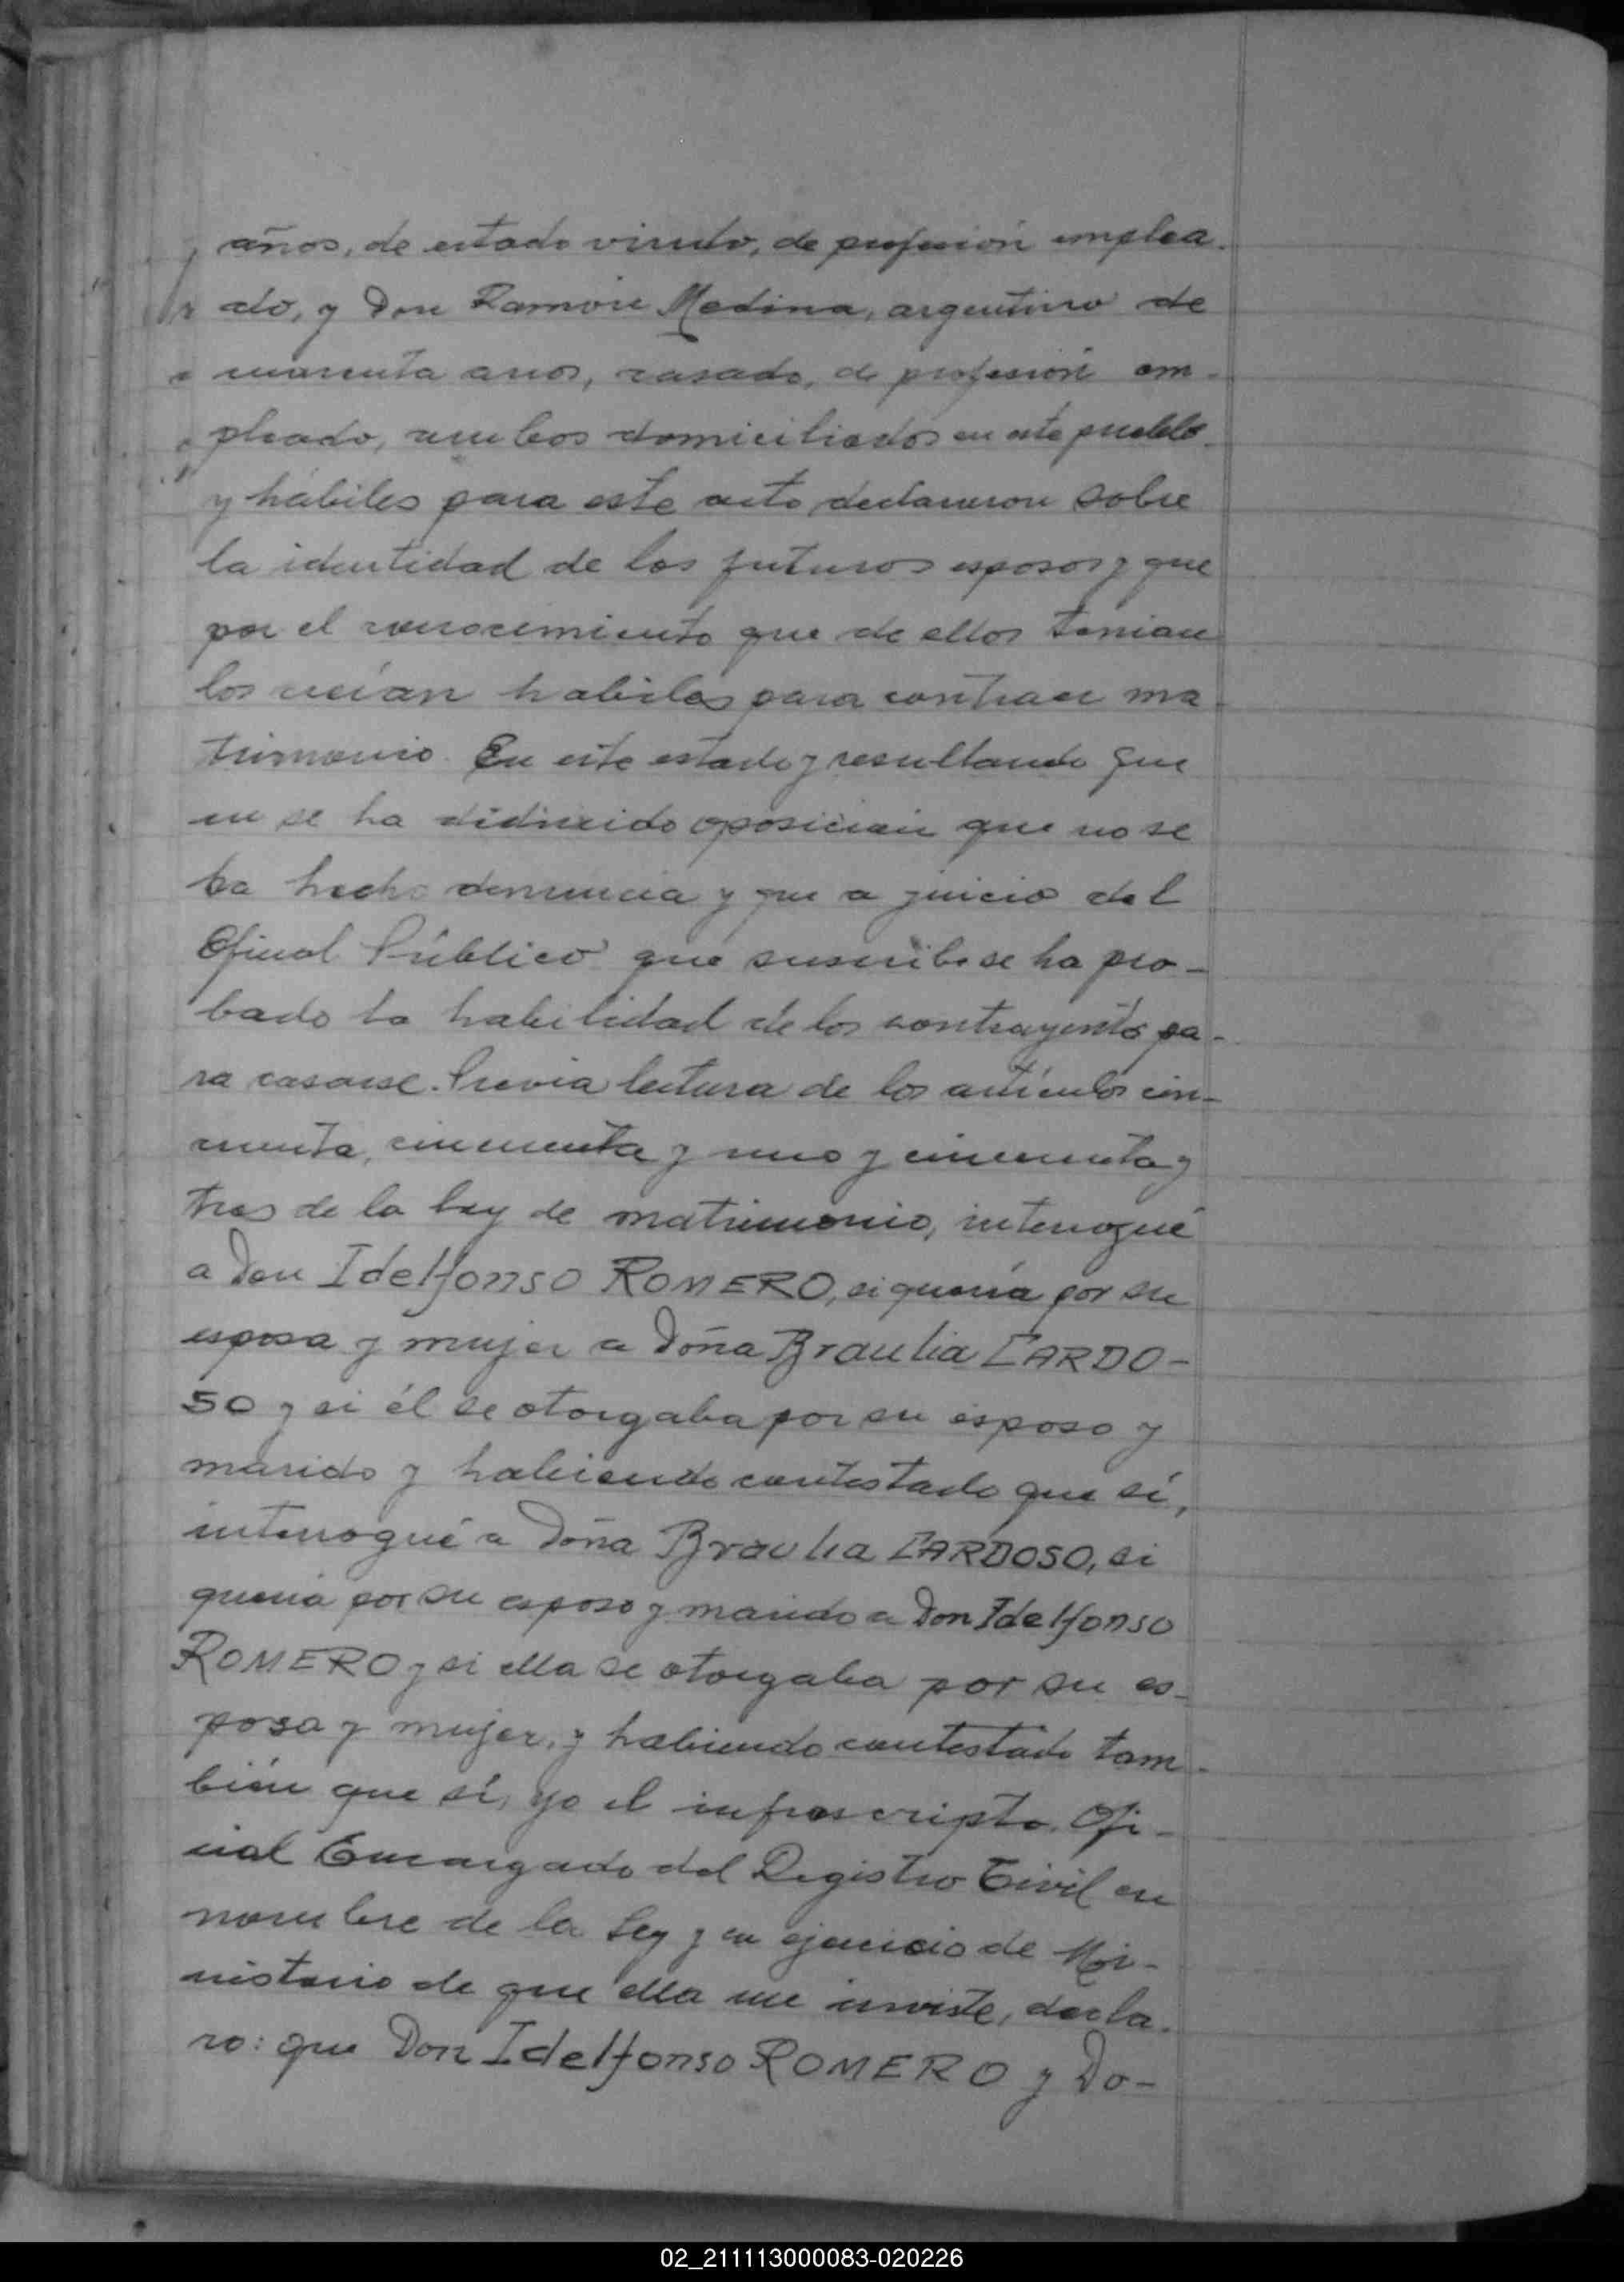 años, de estado viudo, de profesión emplea-
do, y Don Ramón Medina, argentino de
cuarenta años, casado, de profesión em-
pleado, ambos domiciliados en este pueblo
y hábiles para este acto declararon sobre
la identidad de los futuros esposos y que
por el conocimiento que de ellos tenian
los creían habiles para contraer ma-
trimonio. En este estado y resultando que
no se ha diducido oposicion que no se
ha hecho denuncia y que a juicio del
Oficial Público que suscribe se ha pro-
bado la habilidad de los contrayentes pa-
ra casarse. Previa lectura de los artículos cin-
cuenta, cincuenta y uno y cincuenta y
tres de la ley de matrimonio, interrogué
a Don Idelfonso ROMERO, si quería por su
esposa y mujer a Doña Braulia CARDO-
SO y si él se otorgaba por su esposo y
marido y habiendo contestado que sí,
interrogué a Doña Braulia CARDOSO, si
quería por su esposo y marido a Don Idelfonso
ROMERO y si ella se otorgaba por su es-
posa y mujer, y habiendo contestado tam-
bién que sí, yo el infrascripto Ofi-
cial Encargado del Registro Civil en
nombre de la Ley y en ejercicio de Mi-
nisterio de que ella me inviste, decla-
ro: que Don Idelfonso ROMERO y Do-
02_211113000083-020226